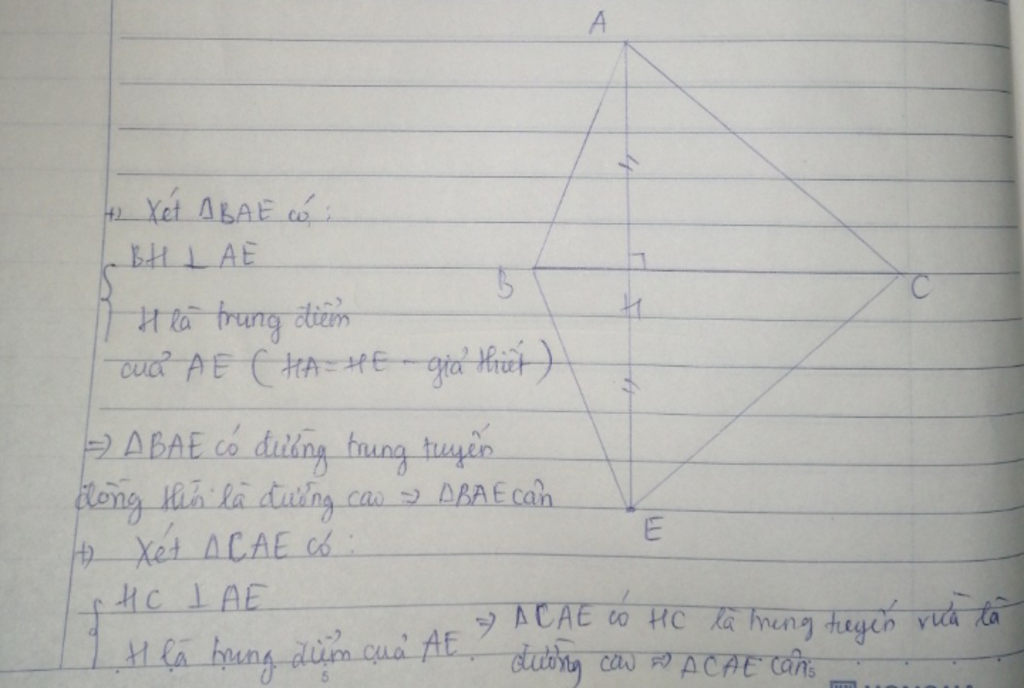 A
+) Xét ΔBAE có:
BH ⊥ AE
B
H
C
H là trung điểm
của AE (HA = HE - giả thiết)
=> ΔBAE có đường trung tuyến
đồng thời là đường cao => ΔBAE cân
E
+) Xét ΔCAE có:
HC ⊥ AE
H là trung điểm của AE
=> ΔCAE có HC là trung tuyến vừa là
đường cao => ΔCAE cân.